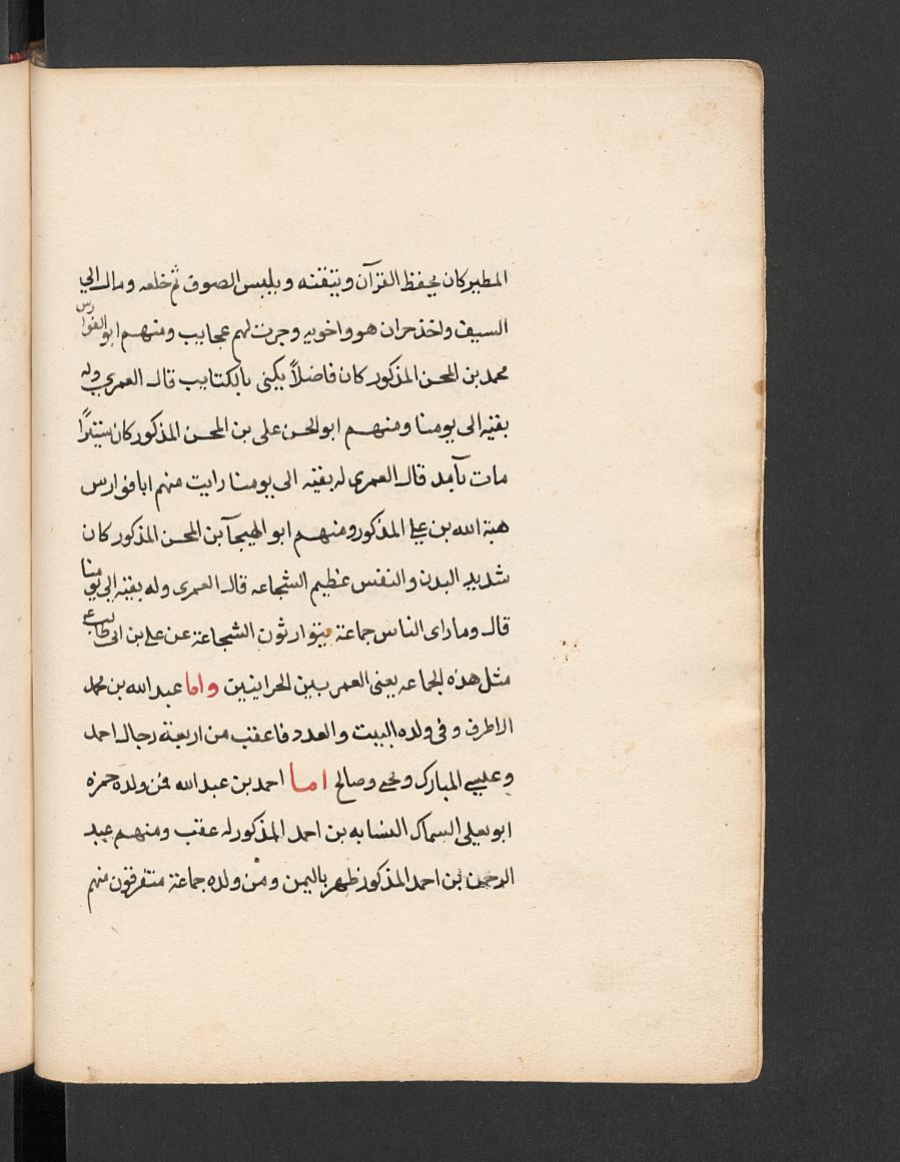 المطير كان يحفظ القرآن ويتقنه ويلبس الصوف ثم خلعه ومال الي
السيف واخذ حران هو واخويه وجرت لهم عجايب ومنهم ابو الفوارس
محمد بن المحسن المذكور كان فاضلاً يكنى بابى الكتايب قال العمري وله
بقيه الى يومنا ومنهم ابو الحسن على بن المحسن المذكور كان ستيرًا
مات بآمد قال العمري له بقيه الى يومنا رايت منهم ابا فوارس
هبة الله بن علي المذكور ومنهم ابو الهيجآ بن المحسن المذكور كان
شديد البدن والنفس عظيم الشجاعه قال العمرى وله بقيه الى يومنا
قال وما راى الناس جماعة يتوارثون الشجاعة عن على بن ابى طالب ع
مثل هذه الجماعه يعنى العمريين الحرانيين واما عبد الله بن محمد
الاطرف وفى ولده البيت والعدد فاعقب من اربعة رجال احمد
وعيسى المبارك ويحيى وصالح اما احمد بن عبد الله فمن ولده حمزه
ابو يعلى السماك النسابه بن احمد المذكور له عقب ومنهم عبد
الرحمن بن احمد المذكور ظهر باليمن ومن ولده جماعة متفرقون منهم